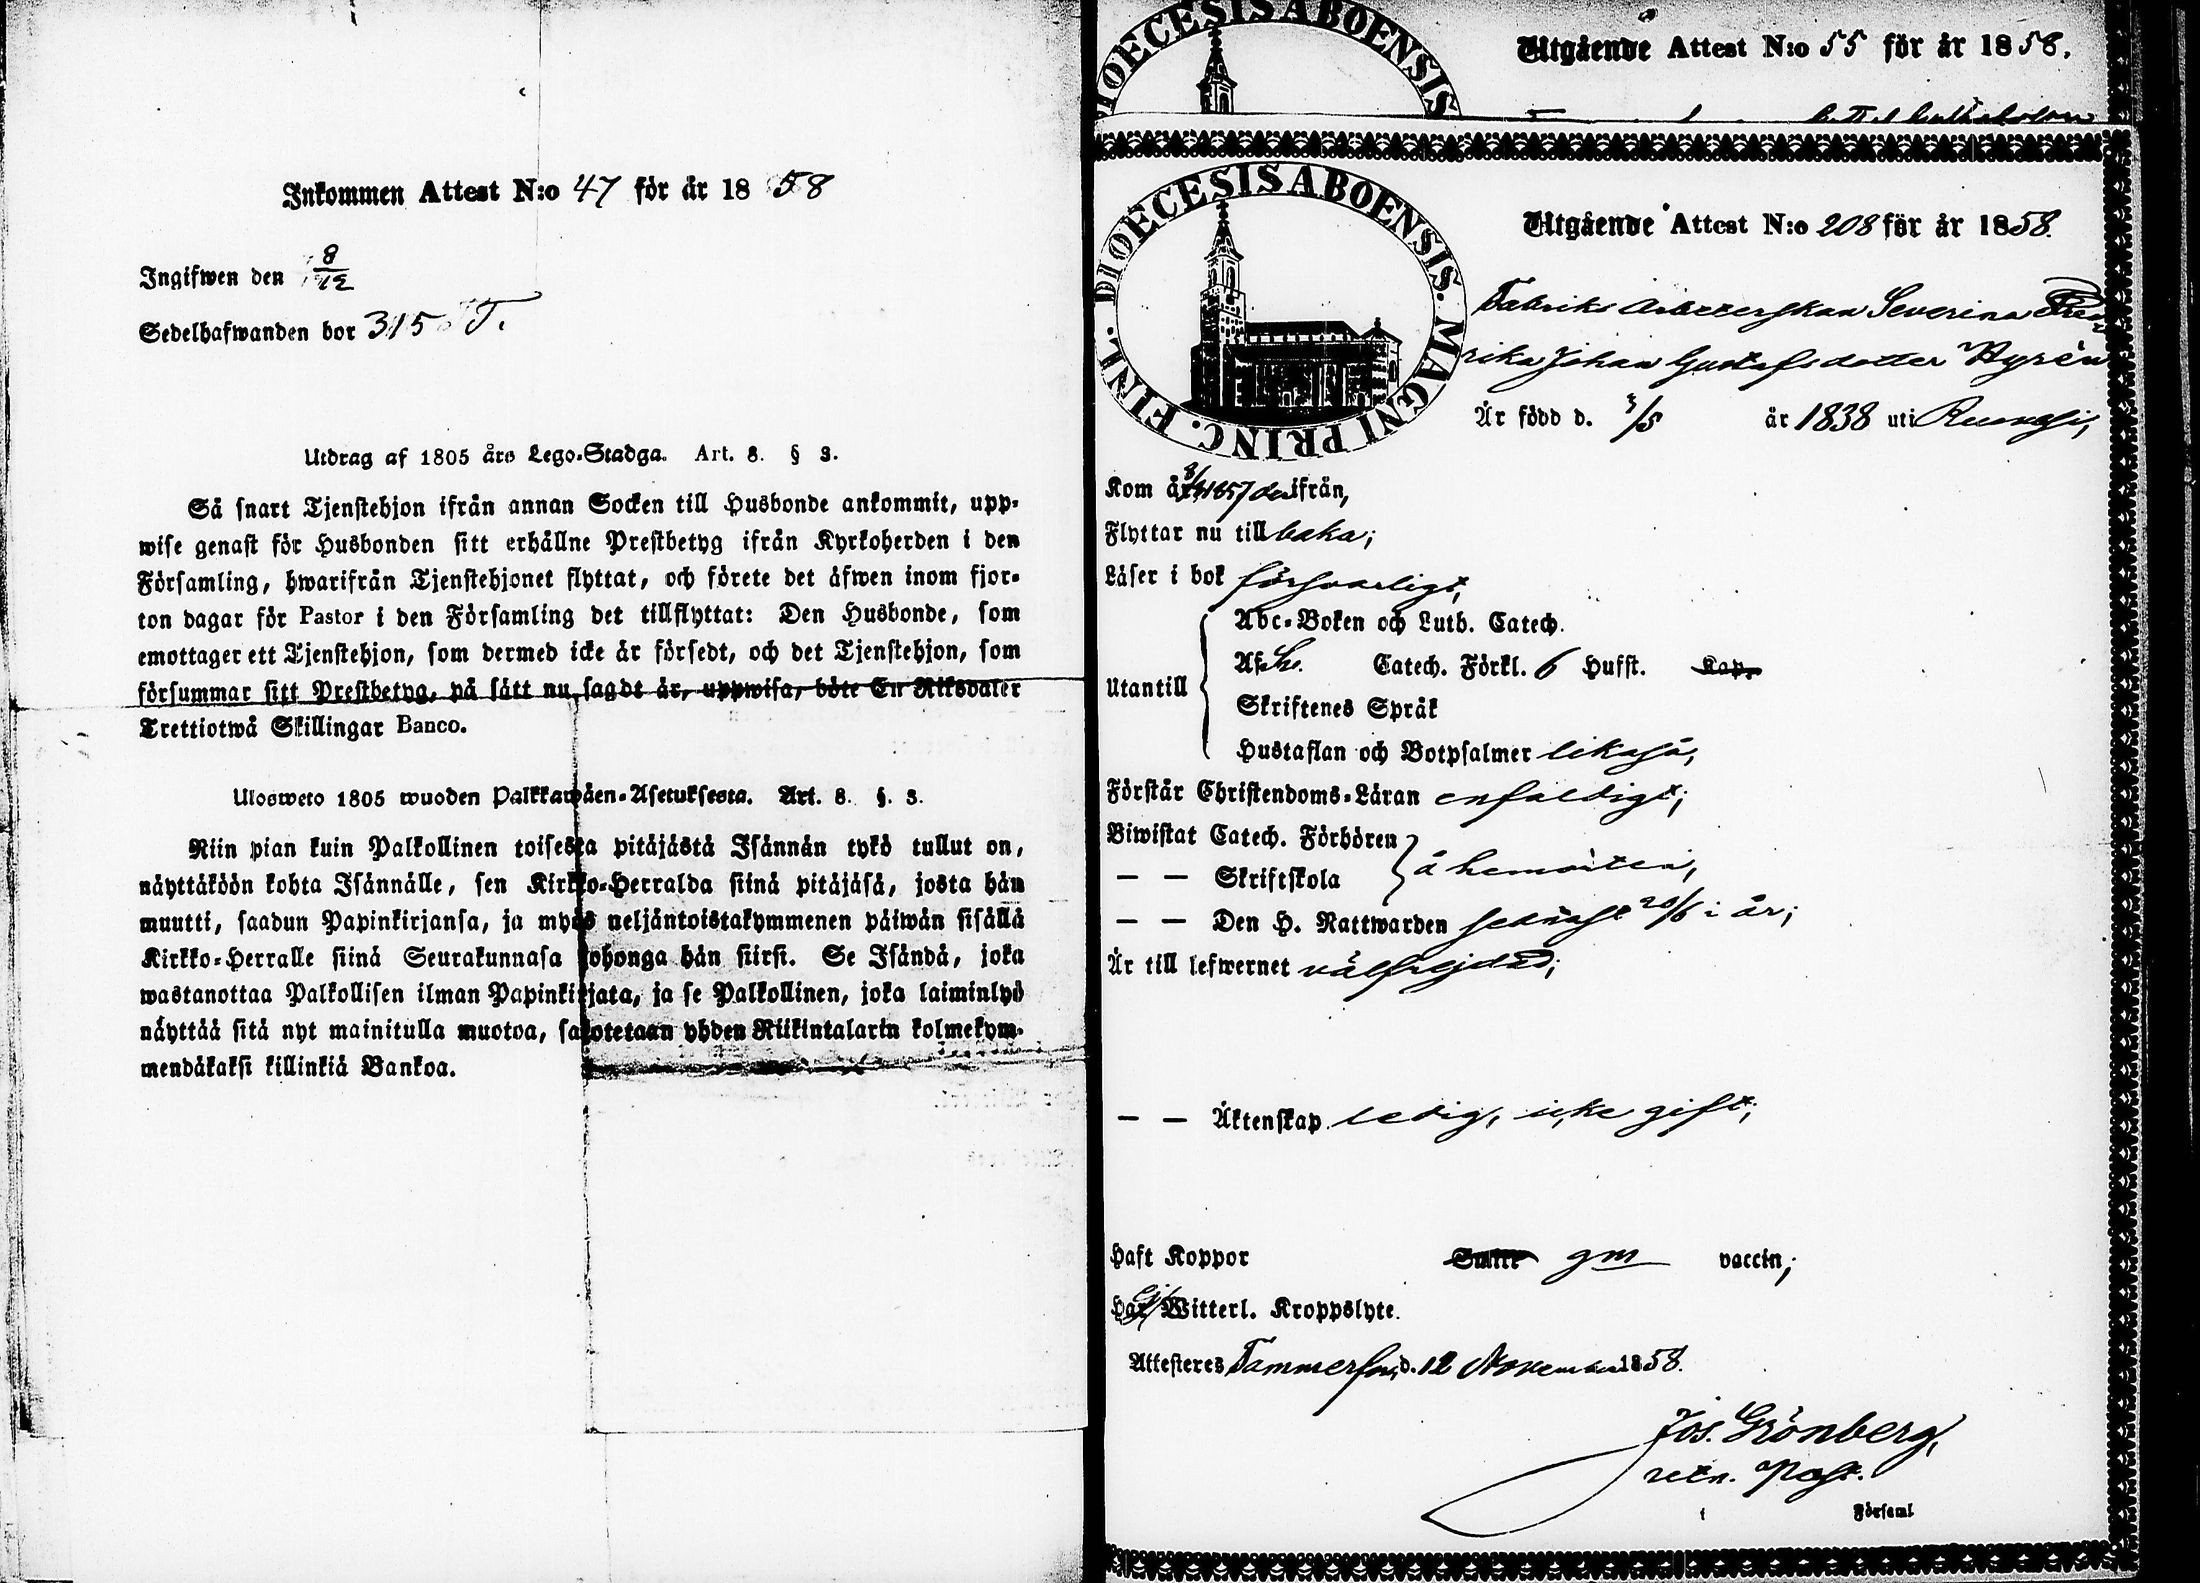 Inkommen Attest N:o 47 för år 1858
Ingifwen den 8/12
Sedelhafwanden bor 315 T.
Utdrag af 1805 års Lego-Stadga. Art. 8. § 3.
Så snart Tjenstehjon ifrån annan Socken till Husbonde ankommit, upp-
wise genast för Husbonden sitt erhållne Prestbetyg ifrån Kyrkoherden i den
Församling, hwarifrån Tjenstehjonet flyttat, och förete det äfwen inom fjor-
ton dagar för Pastor i den Församling det tillflyttat: Den Husbonde, som
emottager ett Tjenstehjon, som dermed icke är försedt, och det Tjenstehjon, som
försummar sitt Prestbetyg, på sätt nu sagdt är, uppwisa, böte En Riksdaler
Trettiotwå Skillingar Banco.
Ulosweto 1805 wuoden Palkkawäen-Asetuksesta. Art. 8. §. 3.
Niin pian kuin Palkollinen toisesta pitäjästä Isännän tykö tullut on,
näyttäköön kohta Isännälle, sen Kirkko-Herralda siinä pitäjäsä, josta hän
muutti, saadun Papinkirjansa, ja myös neljäntoistakymmenen päiwän sisällä
Kirkko-Herralle siinä Seurakunnasa johonga hän siirsi. Se Isändä, joka
wastanottaa Palkollisen ilman Papinkirjata, ja se Palkollinen, joka laiminlyö
näyttää sitä nyt mainitulla muotoa, sakotetaan yhden Riikintalarin kolmekym-
mendäkaksi killinkiä Bankoa.
DIOECESIS ABOENSIS
Utgående Attest N:o 55 för år 1858.
DIOECESIS ABOENSIS. MAGNI PRINC. FINL.
Utgående Attest N:o 208 för år 1858.
Fabriks Arbeterskan Severina Fred
rika Johan Gustafsdotter Byrén
Är född d. 3/5 år 1838 uti
Kom år 1857 ifrån,
Flyttar nu till baka;
Läser i bok försvarligt,
Abc-Boken och Luth. Catech.
Af Sv. Catech. Förkl. 6 Hufst. Kap.
Utantill
Skriftenes Språk
Hustaflan och Botpsalmer likaså,
Förstår Christendoms-Läran enfaldigt;
Biwistat Catech. Förhören
— — Skriftskola å hemorten,
— — Den H. Nattwarden sednast 20/6 i år;
Är till lefwernet välfrejdad;
— — Äktenskap ledig, icke gift;
Haft Koppor gm vaccin;
Har Ej Witterl. Kroppslyte.
Attesteres Tammerfors d. 12 November 1858.
Jos. Grönberg,
Past.
i Församl